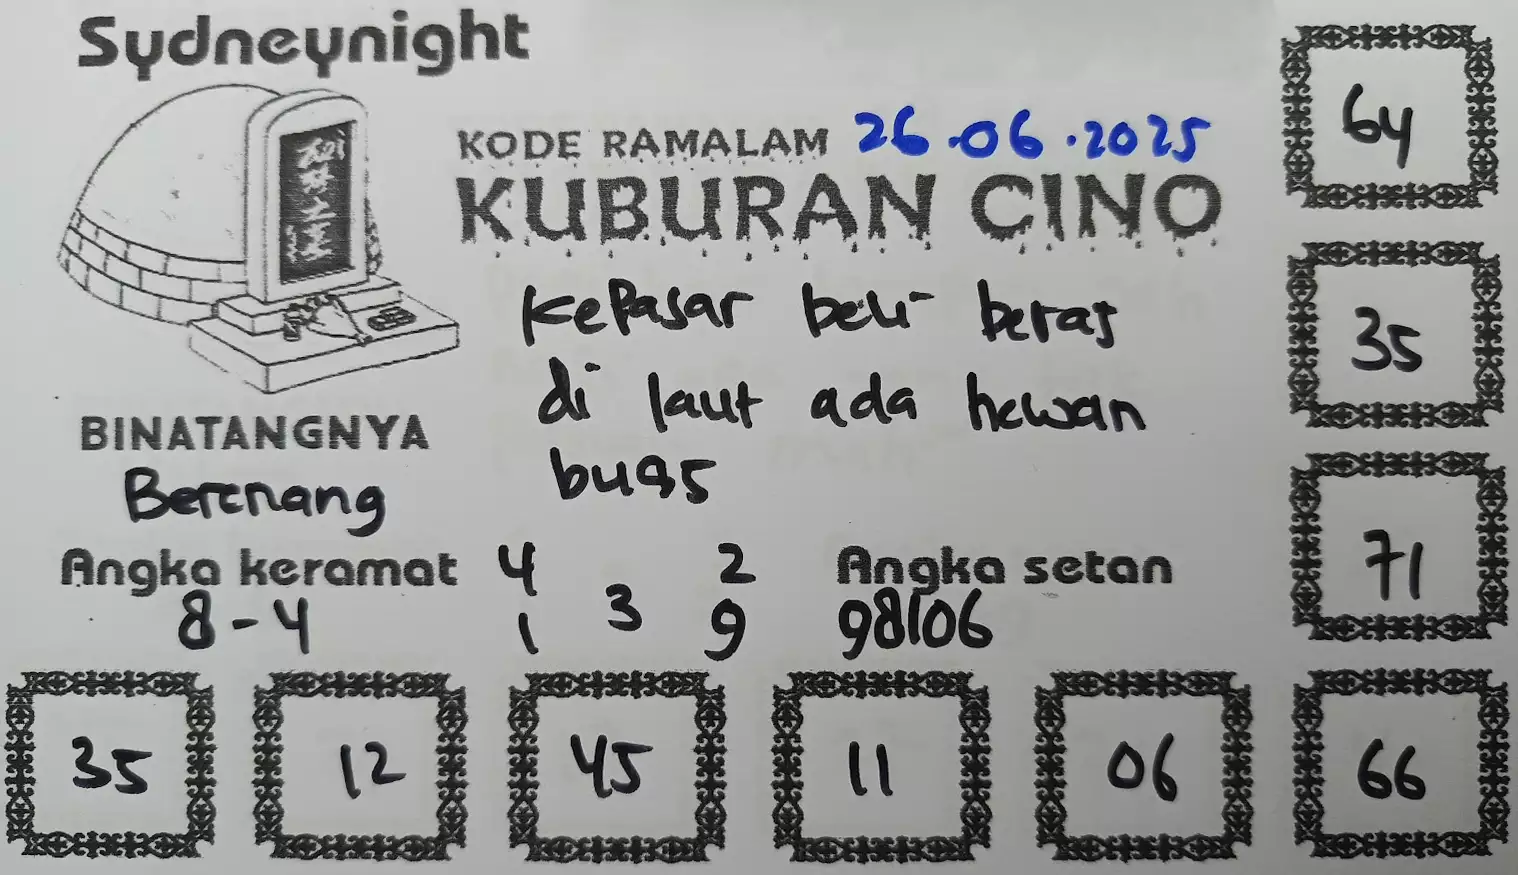 Sydneynight
KODE RAMALAM 26.06.2025
KUBURAN CINO
kepasar beli beras
di laut ada hewan
buas
BINATANGNYA
Berenang
Angka keramat
8-4
4 2
3
1 9
Angka setan
98106
64
35
71
35 12 45 11 06 66